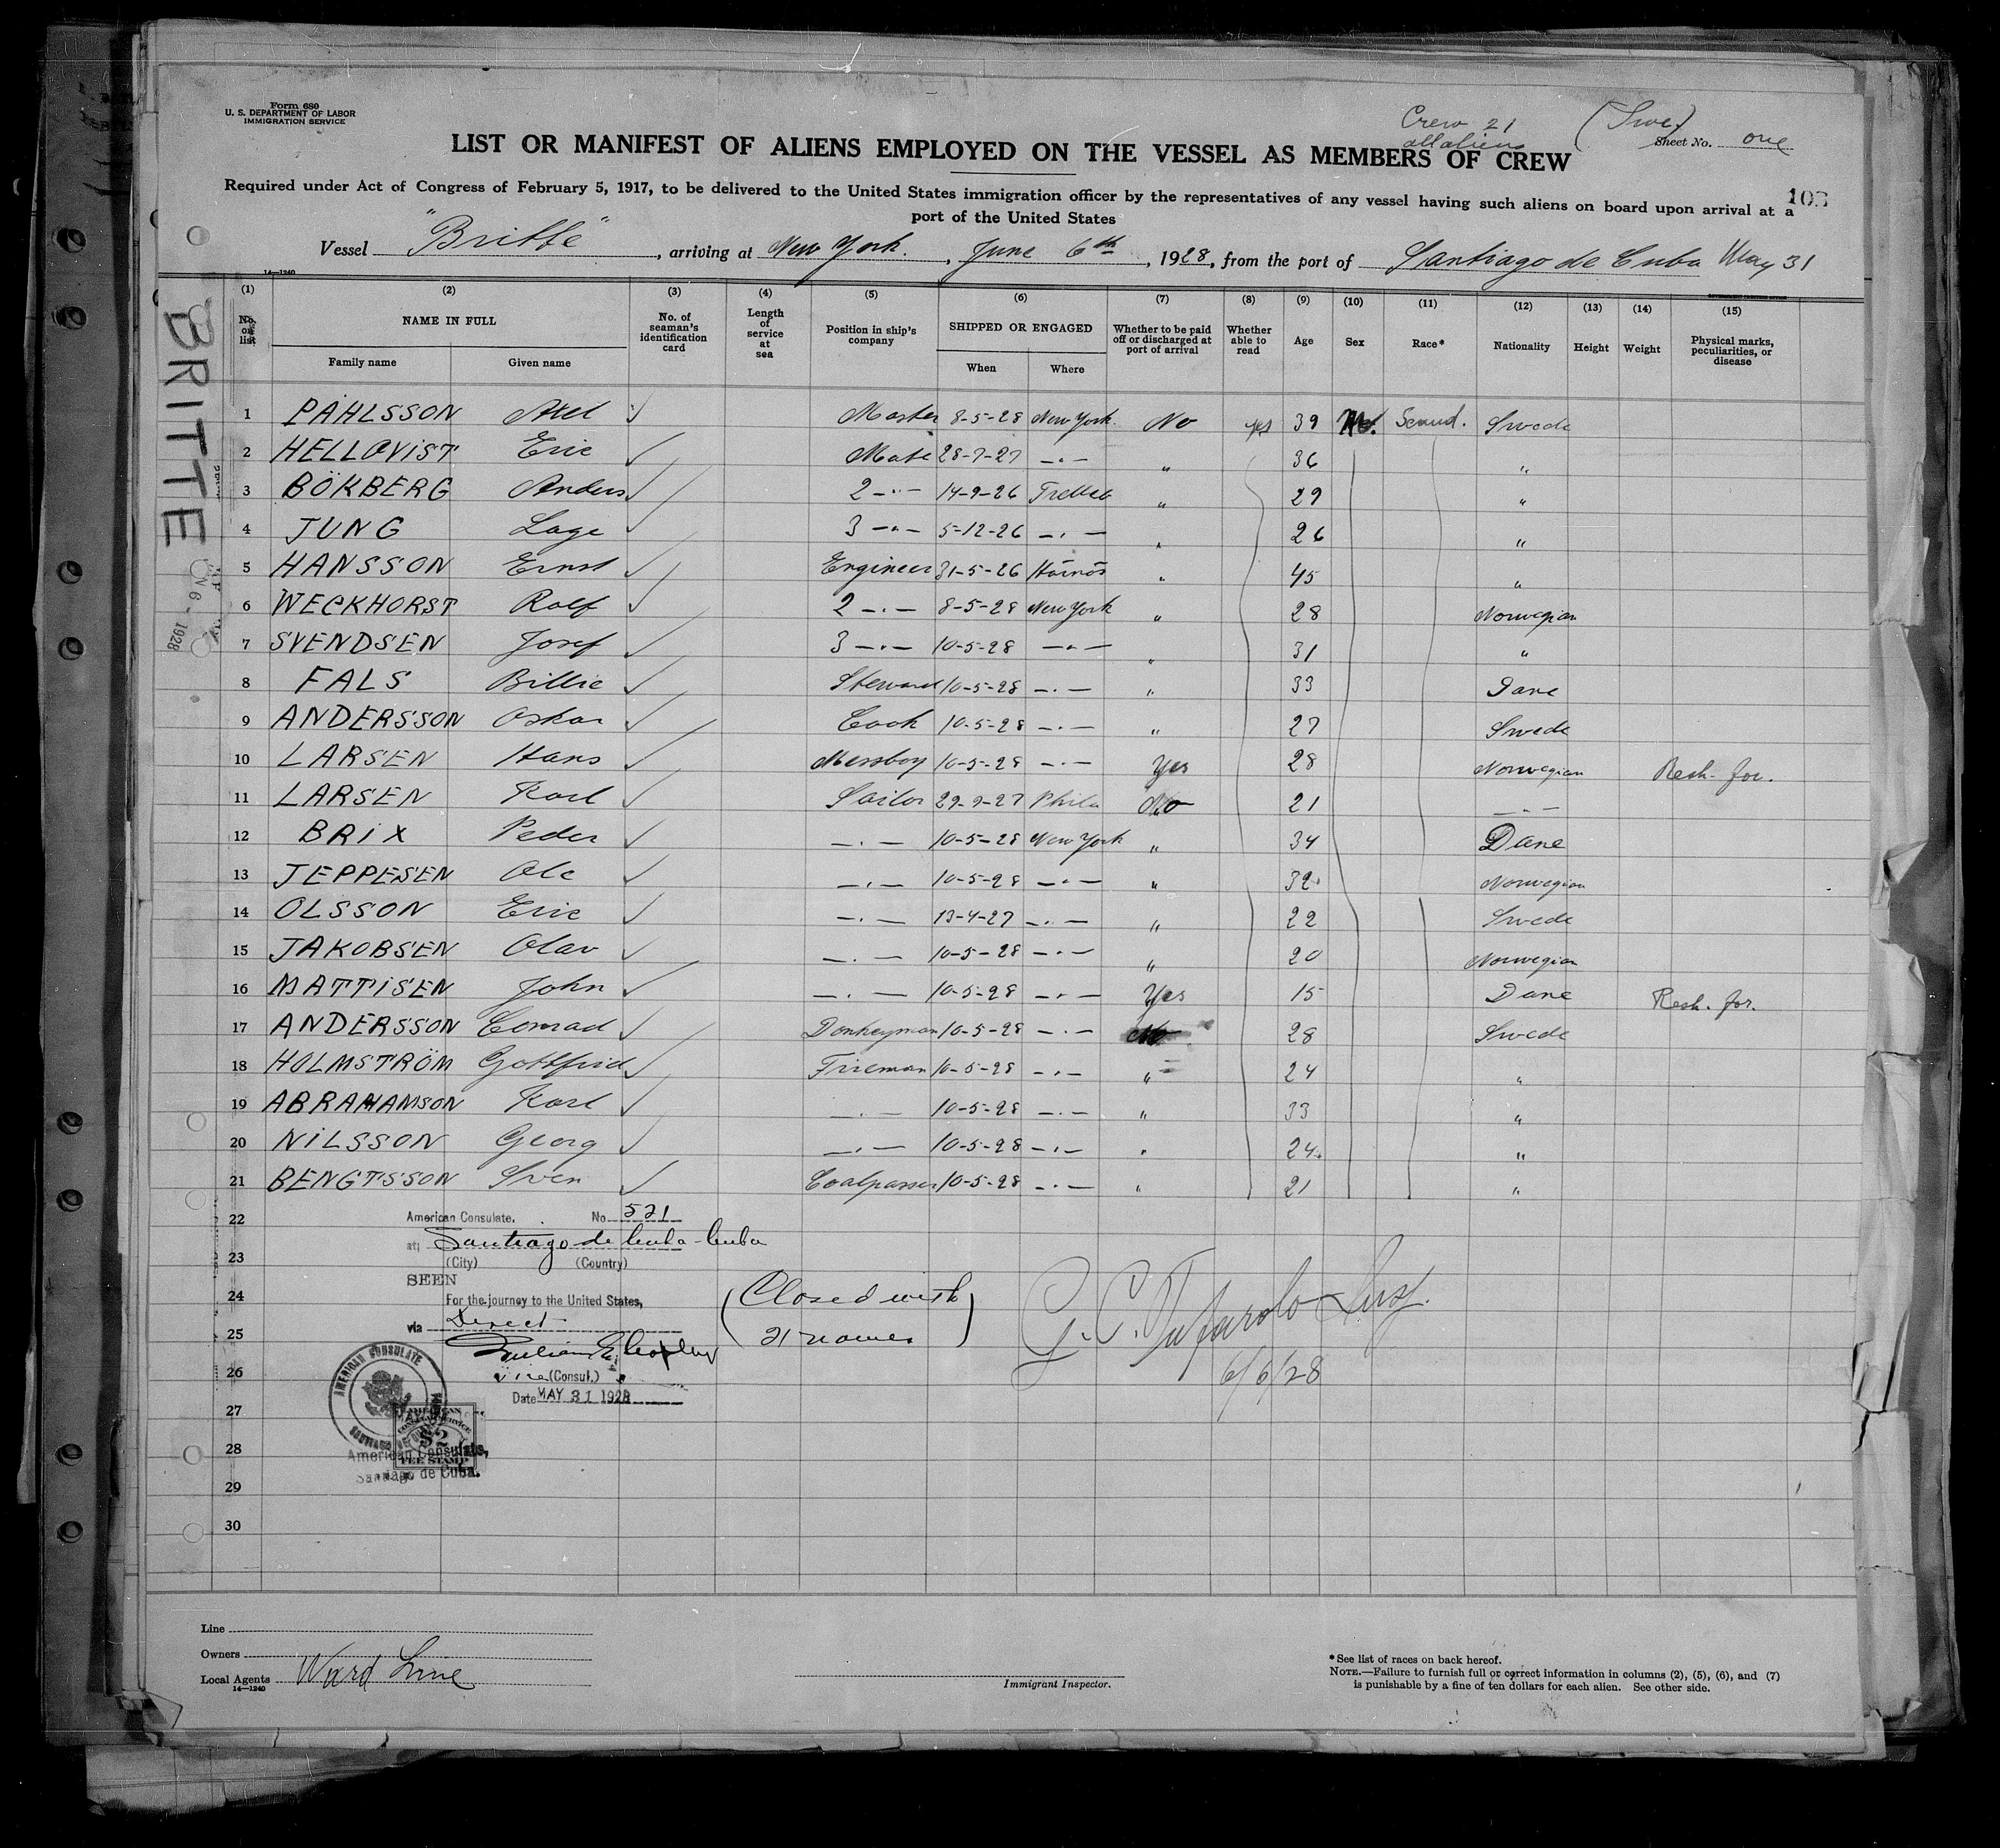 Form 680
U. S. DEPARTMENT OF LABOR
IMMIGRATION SERVICE
Crew 21
all aliens
(Swe)
Sheet No. one
LIST OR MANIFEST OF ALIENS EMPLOYED ON THE VESSEL AS MEMBERS OF CREW
103
Required under Act of Congress of February 5, 1917, to be delivered to the United States immigration officer by the representatives of any vessel having such aliens on board upon arrival at a
port of the United States
Vessel "Britte", arriving at New York., June 6th, 1928, from the port of Santiago de Cuba May 31
14—1240
BRITTE
(1) (2) (3) (4) (5) (6) (7) (8) (9) (10) (11) (12) (13) (14) (15)
No. on list
NAME IN FULL
Family name Given name
No. of seaman's identification card
Length of service at sea
Position in ship's company
SHIPPED OR ENGAGED
When Where
Whether to be paid off or discharged at port of arrival
Whether able to read
Age
Sex
Race*
Nationality
Height
Weight
Physical marks, peculiarities, or disease
1 PÅHLSSON Axel ✓ Master 8-5-28 New York. No yes 39 M. Scand. Swede
2 HELLQVIST Eric ✓ Mate 28-7-27 —"— " 36 "
3 BÖKBERG Anders ✓ 2 —"— 14-9-26 " 29 "
4 JUNG Lage ✓ 3 —"— 5-12-26 —"— " 26 "
5 HANSSON Ernst ✓ Engineer 31-5-26 " 45 "
6 WECKHORST Rolf ✓ 2 —"— 8-5-28 New York " 28 Norwegian
7 SVENDSEN Josef ✓ 3 —"— 10-5-28 —"— " 31 "
8 FALS Billie ✓ Steward 10-5-28 —"— " 33 Dane
9 ANDERSSON Oskar ✓ Cook 10-5-28 —"— " 27 Swede
10 LARSEN Hans ✓ Messboy 10-5-28 —"— Yes 28 Norwegian Resh. for.
11 LARSEN Karl ✓ Sailor 29-9-27 Phila No 21 —"—
12 BRIX Peder ✓ —"— 10-5-28 New York " 34 Dane
13 JEPPESEN Ole ✓ —"— 10-5-28 —"— " 32 Norwegian
14 OLSSON Eric ✓ —"— 13-4-27 —"— " 22 Swede
15 JAKOBSEN Olav ✓ —"— 10-5-28 —"— " 20 Norwegian
16 MATTISEN John ✓ —"— 10-5-28 —"— Yes 15 Dane Resh. for.
17 ANDERSSON Conrad ✓ Donkeyman 10-5-28 —"— No 28 Swede
18 HOLMSTRÖM Gottfrid ✓ Fireman 10-5-28 —"— " 24 "
19 ABRAHAMSON Karl ✓ —"— 10-5-28 —"— " 33 "
20 NILSSON Georg ✓ —"— 10-5-28 —"— " 24 "
21 BENGTSSON Sven ✓ Coalpasser 10-5-28 —"— " 21 "
22
23
24
25
26
27
28
29
30
American Consulate. No. 521
at Santiago de Cuba - Cuba
(City) (Country)
SEEN
For the journey to the United States,
via Direct
Vice (Consul.)
Date MAY 31 1928
(Closed with
21 names)
6/6/28
AMERICAN CONSULATE
$2
FEE STAMP
American Consulate,
Santiago de Cuba.
Line
Owners
Local Agents Ward Line
14—1240
Immigrant Inspector.
* See list of races on back hereof.
NOTE.—Failure to furnish full or correct information in columns (2), (5), (6), and (7)
is punishable by a fine of ten dollars for each alien. See other side.